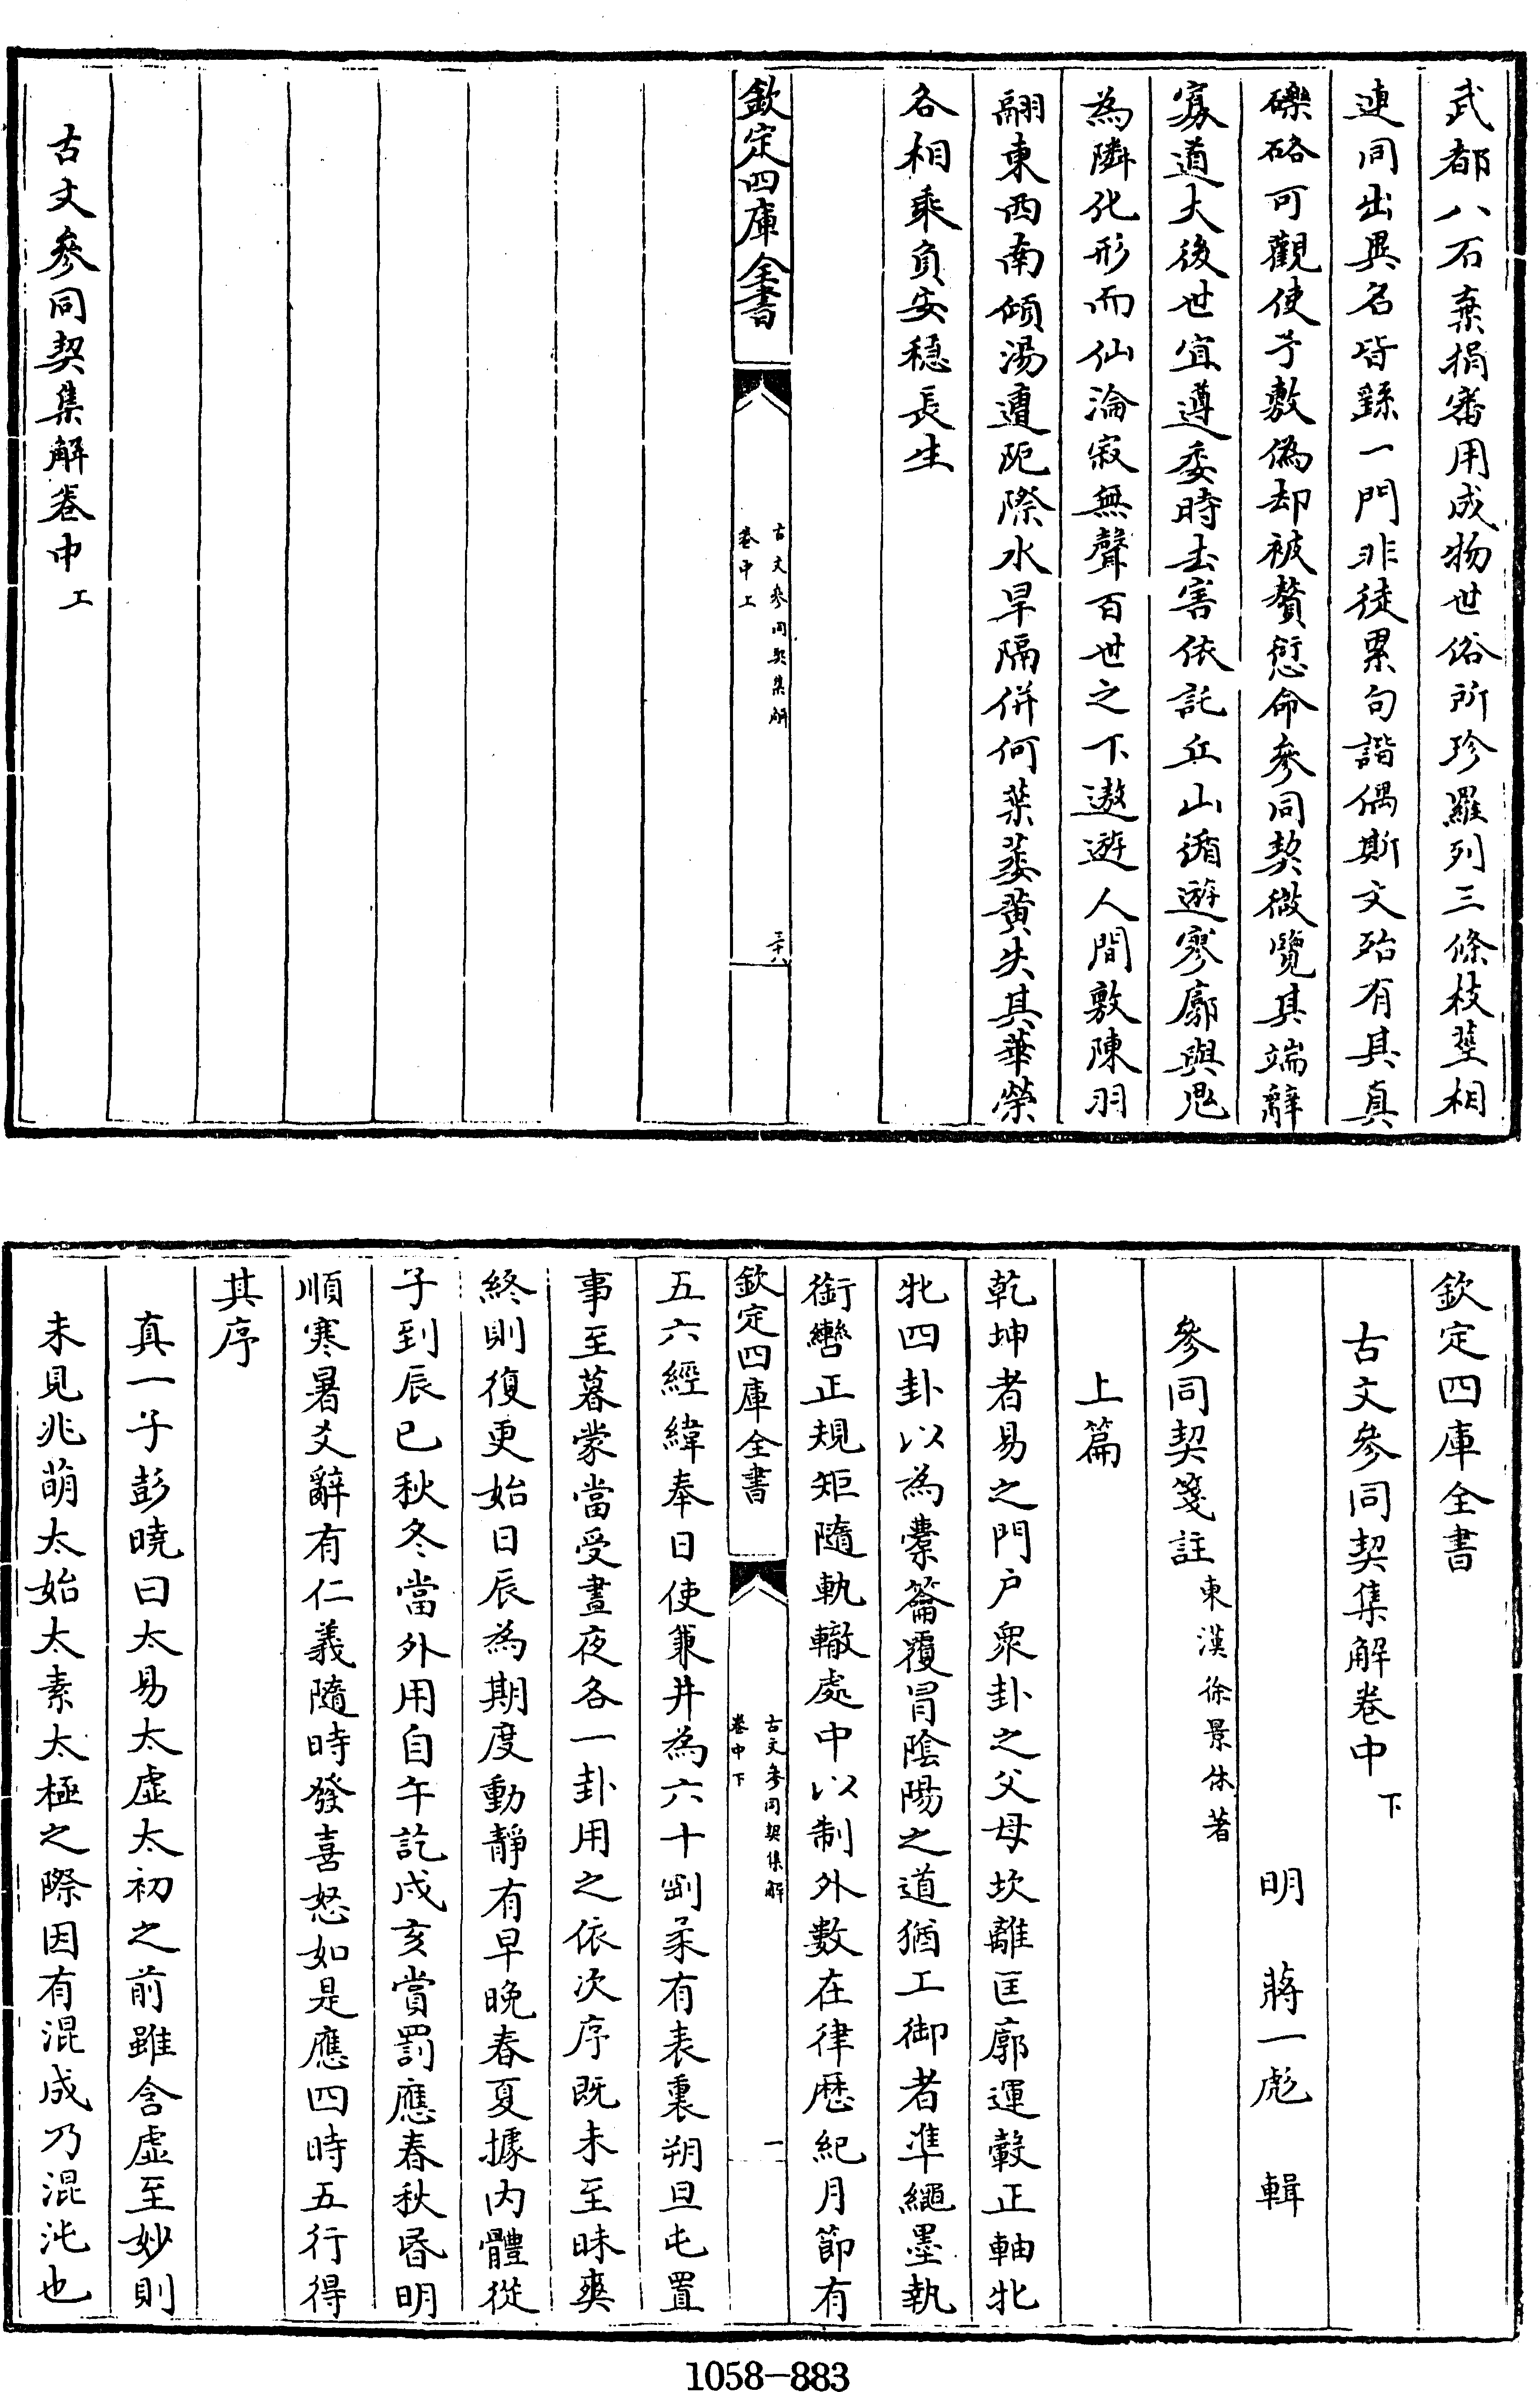 武都八石棄捐審用成物世俗所珍羅列三條枝莖相
連同出異名皆繇一門非徒累句諧偶斯文殆有其真
礫硌可觀使予敷偽却被贅愆命參同契微覽其端辭
寡道大後世宜遵委時去害依託丘山循遊寥廓與鬼
為隣化形而仙淪寂無聲百世之下遨遊人間敷陳羽
翮東西南傾湯遭阨際水旱隔併柯葉萎黄失其華榮
各相乘負安穩長生
欽定四庫全書
古文參同契集解
卷中上
三十八
古文參同契集解卷中上
欽定四庫全書
古文參同契集解卷中下
明 蔣一彪 輯
參同契箋註東漢徐景休著
上篇
乾坤者易之門户衆卦之父母坎離匡廓運轂正軸牝
牝四卦以為橐籥覆冒陰陽之道猶工御者準繩墨執
銜轡正規矩隨軌轍處中以制外數在律歴紀月節有
欽定四庫全書
古文參同契集解
卷中下
一
五六經緯奉日使兼并為六十剛柔有表裏朔旦屯置
事至暮蒙當受晝夜各一卦用之依次序既未至昧爽
終則復更始日辰為期度動靜有早晚春夏據内體從
子到辰巳秋冬當外用自午訖戌亥賞罰應春秋昏明
順寒暑爻辭有仁義隨時發喜怒如是應四時五行得
其序
真一子彭曉曰太易太虚太初之前雖含虚至妙則
未見兆萌太始太素太極之際因有混成乃混沌也
1058-883